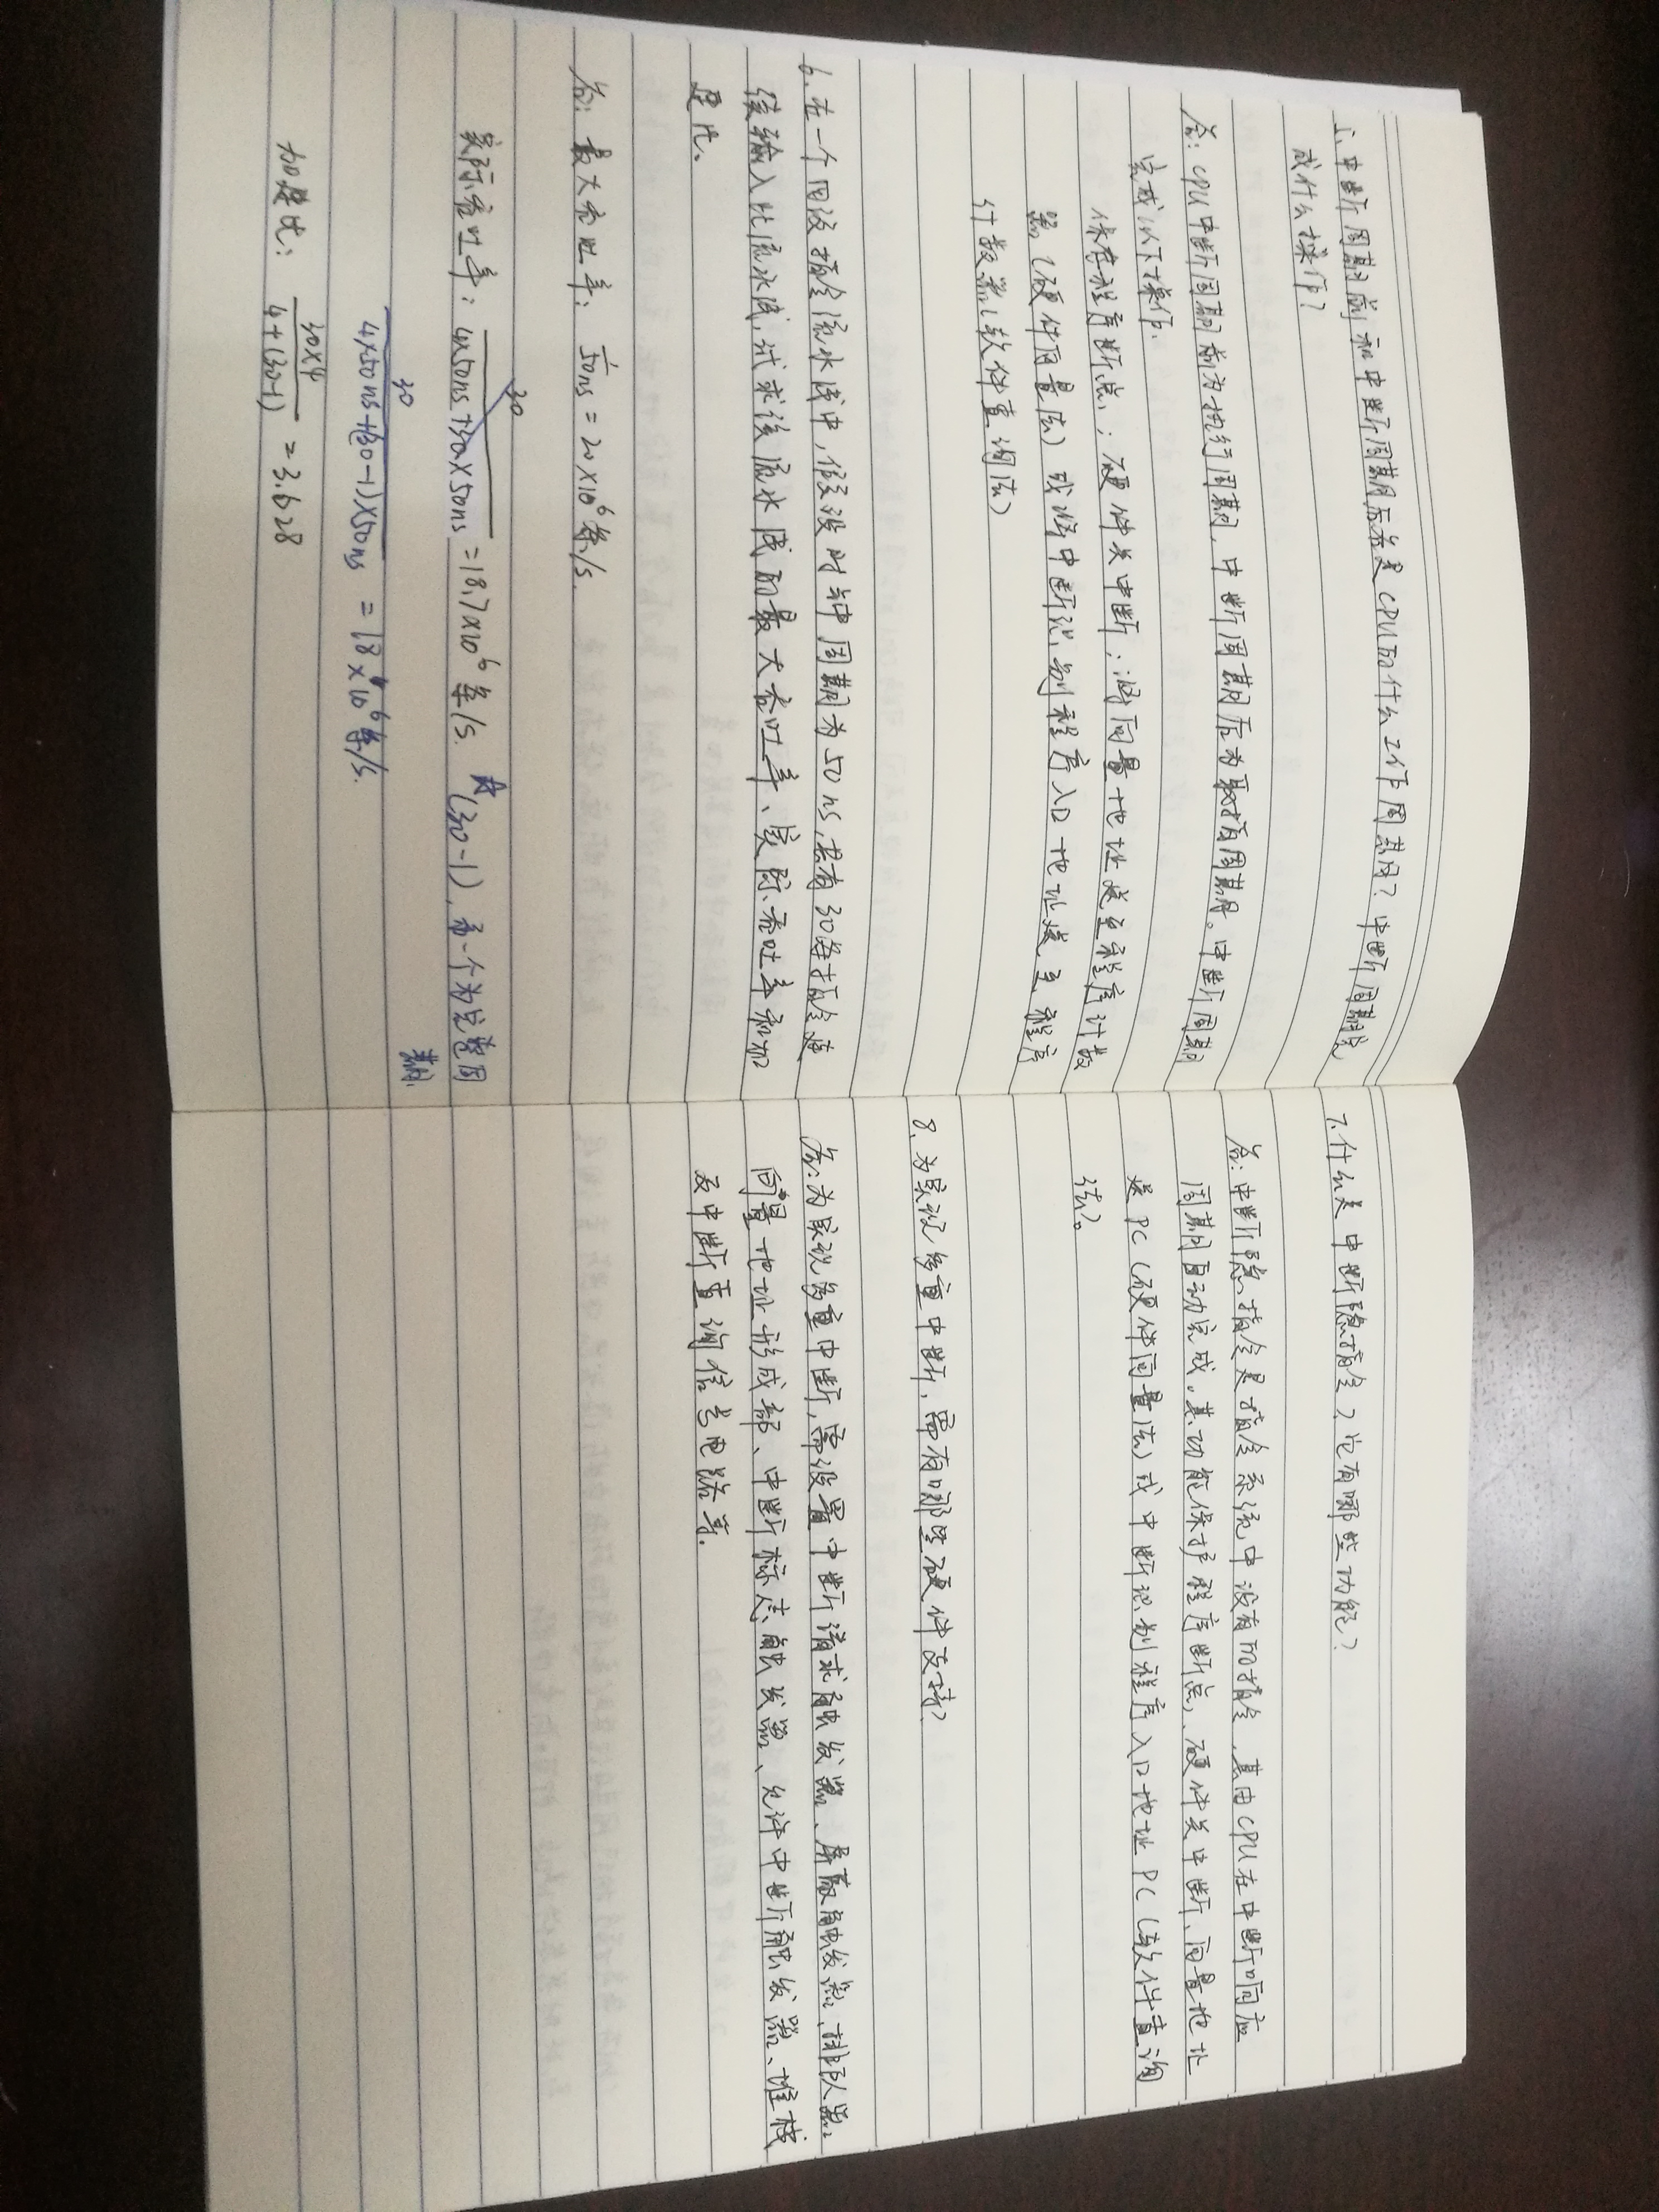 5.中断周期前和中断周期后各是CPU的什么工作周期？中断周期完
成什么操作？
答：CPU中断周期前为执行周期，中断周期后为取指周期。中断周期
完成以下操作：
保存程序断点；硬件关中断；将向量地址送至程序计数
器（硬件向量法）或将中断识别程序入口地址送至程序
计数器（软件查询法）
6.在一个四段指令流水线中，假设时钟周期为50ns，若有30条指令连
续输入此流水线，试求该流水线的最大吞吐率、实际吞吐率和加
速比、
答：最大吞吐率：1/50ns = 20×10⁶条/s.
30
实际吞吐率：4×50ns+30×50ns = 18.7×10⁶条/s. (30-1)，第一个为完整周
期.
30/4×50ns+(30-1)×50ns = 18×10⁶条/s.
加速比：30×4/4+(30-1) = 3.628
7.什么是中断隐指令？它有哪些功能？
答：中断隐指令是指令系统中没有的指令，其由CPU在中断响应
周期自动完成。其功能保护程序断点，硬件关中断、向量地址
送PC（硬件向量法）或中断识别程序入口地址PC（软件查询
法）。
8.为实现多重中断，需有哪些硬件支持？
答：为实现多重中断，需设置中断请求触发器、屏蔽触发器、排队器、
向量地址形成部、中断标志触发器、允许中断触发器、堆栈
及中断查询信号电路等.